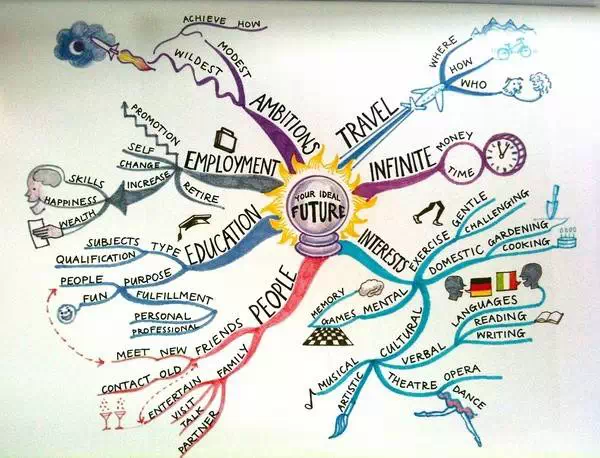 YOUR IDEAL
FUTURE
AMBITIONS
MODEST
WILDEST
ACHIEVE HOW
TRAVEL
WHERE
HOW
WHO
INFINITE
MONEY
TIME
INTERESTS
EXERCISE
GENTLE
CHALLENGING
DOMESTIC
GARDENING
COOKING
MENTAL
MEMORY
GAMES
CULTURAL
VERBAL
LANGUAGES
READING
WRITING
MUSICAL
ARTISTIC
THEATRE
OPERA
DANCE
PEOPLE
FRIENDS
MEET NEW
CONTACT OLD
FAMILY
ENTERTAIN
VISIT
TALK
PARTNER
EDUCATION
TYPE
SUBJECTS
QUALIFICATION
PURPOSE
PEOPLE
FUN
FULFILLMENT
PERSONAL
PROFESSIONAL
EMPLOYMENT
PROMOTION
SELF
CHANGE
INCREASE
SKILLS
HAPPINESS
WEALTH
RETIRE